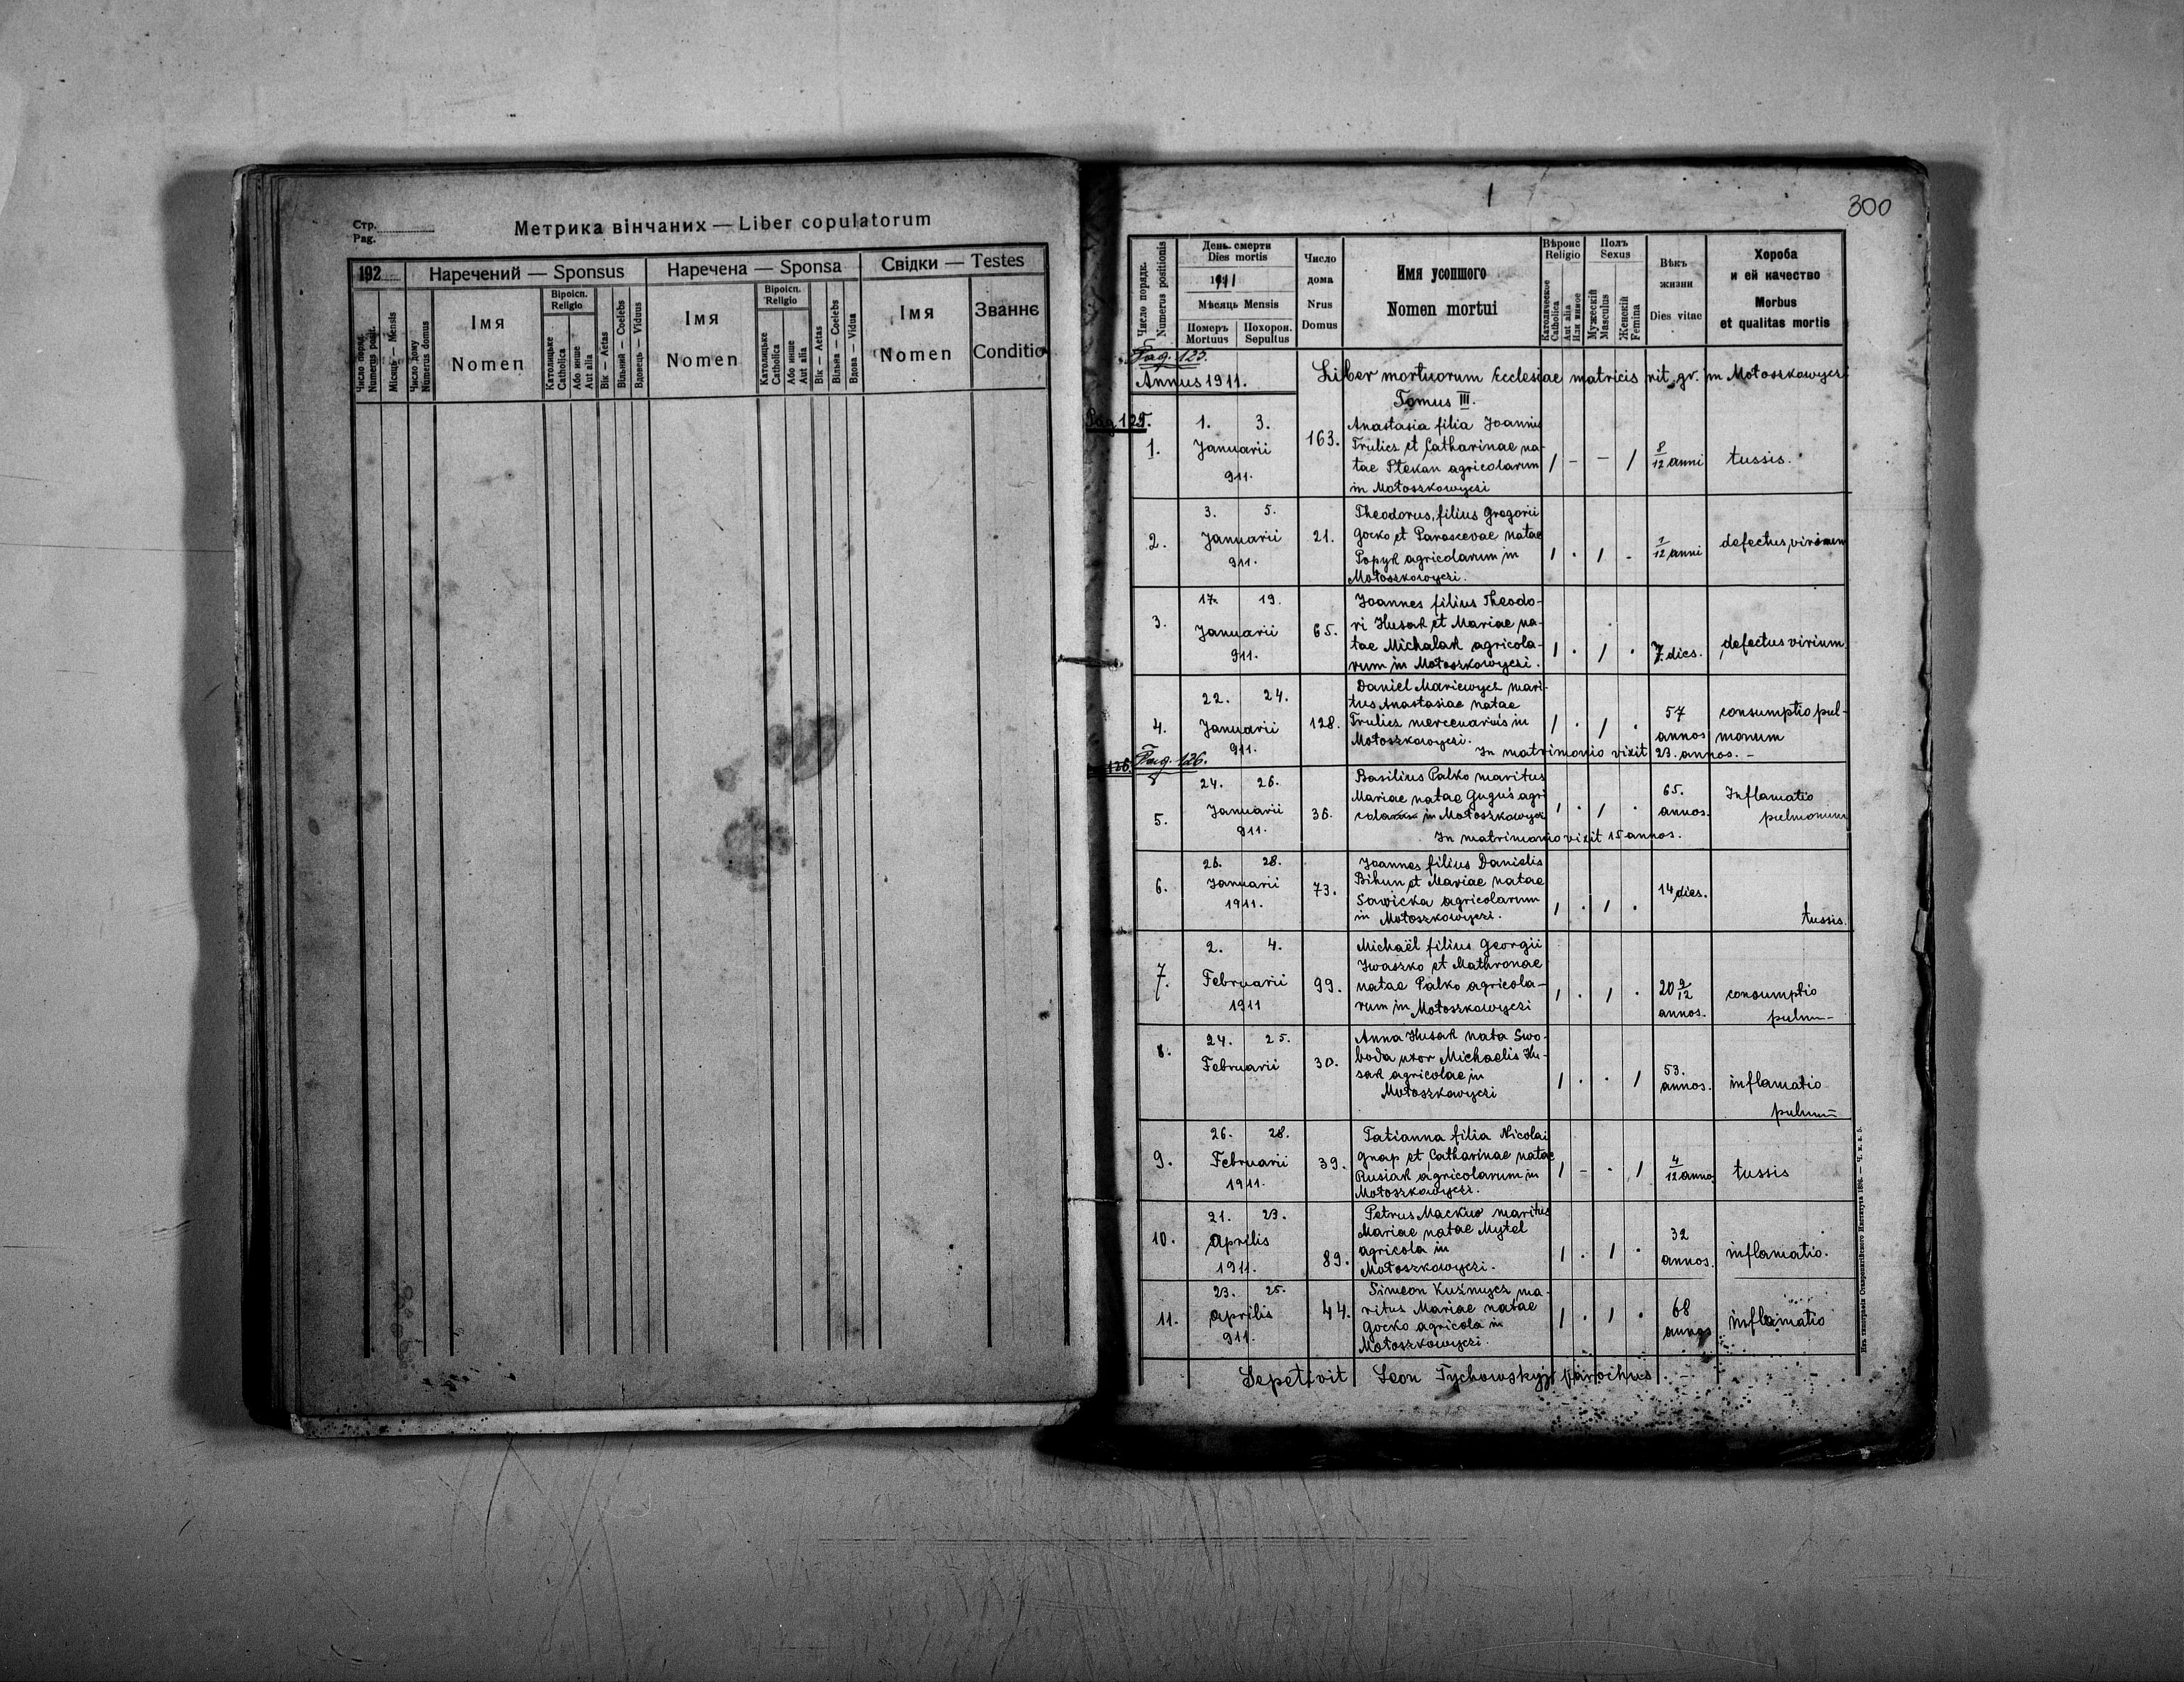 Стр.
Pag.
Метрика вінчаних — Liber copulatorum
192
Наречений — Sponsus
Наречена — Sponsa
Свідки — Testes
Число поряд.
Numerus posit.
Місяць — Mensis
Число дому
Numerus domus
Імя
Nomen
Віроісп.
Religio
Католицьке
Catholica
Або инше
Aut alia
Вік — Aetas
Вільний — Coelebs
Вдовець — Viduus
Імя
Nomen
Віроісп.
Religio
Католицьке
Catholica
Або инше
Aut alia
Вік — Aetas
Вільна — Coelebs
Вдова — Vidua
Імя
Nomen
Званнє
Conditio
300
Число порядк.
Numerus positionis
День смерти
Dies mortis
1911
Мѣсяць Mensis
Померъ
Mortuus
Похорон.
Sepultus
Число
дома
Nrus
Domus
Имя усопшого
Nomen mortui
Вѣроис
Religio
Католическое
Catholica
Aut alia
Или инное
Полъ
Sexus
Мужескій
Masculus
Женскій
Femina
Вѣкъ
жизни
Dies vitae
Хороба
и ей качество
Morbus
et qualitas mortis
Pag. 125.
Annus 1911.
Liber mortuorum Ecclesiae matricis rit. gr. in Mołoszkowyczi
Tomus III.
Pag. 125.
1.
1. 3.
Januarii
911.
163.
Anastasia filia Joannis
Trulicz et Catharinae na-
tae Ptekan agricolarum
in Mołoszkowyczi
/ - - /
8/12 anni
tussis.
2.
3. 5.
Januarii
911.
21.
Theodorus, filius Gregorii
Gocko et Parascevae natae
Popyk agricolarum in
Mołoszkowyczi.
/ . / .
1/12 anni
defectus virium
3.
17. 19.
Januarii
911.
65.
Joannes filius Theodo-
ri Husak et Mariae na-
tae Michalak agricola-
rum in Mołoszkowyczi.
/ . / .
7. dies.
defectus virium
4.
22. 24.
Januarii
911.
128.
Daniel Mariewycz mari-
tus Anastasiae natae
Trulicz mercenarius in
Mołoszkowyczi.
In matrimonio vixit 23. annos. -
/ . / .
57
annos
consumptio pul-
monum
Pag. 126.
126.
5.
24. 26.
Januarii
911.
36.
Basilius Palko maritus
Mariae natae Guguś agri
cola in Mołoszkowyczi
In matrimonio vixit 15 annos.
/ . / .
65.
annos.
Inflamatio
pulmonum
6.
26. 28.
Januarii
1911.
73.
Joannes filius Danielis
Bihun et Mariae natae
Sawicka agricolarum
in Mołoszkowyczi.
/ . / .
14 dies.
tussis.
7.
2. 4.
Februarii
1911
99.
Michaël filius Georgii
Iwaszko et Mathronae
natae Palko agricola-
rum in Mołoszkowyczi
/ . / .
20 2/12
annos.
consumptio
pulm-
8.
24. 25.
Februarii
30.
Anna Husak nata Swo-
boda uxor Michaelis Hu-
sak agricolae in
Mołoszkowyczi
/ . . /
53.
annos.
inflamatio
pulmu=
9.
26. 28.
Februarii
1911.
39.
Tatianna filia Nicolai
Gnap et Catharinae natae
Rusiak agricolarum in
Mołoszkowyczi.
/ - . /
4/12 anno
tussis
10.
21. 23.
Aprilis
1911.
89.
Petrus Mackiw maritus
Mariae natae Mytel
agricola in
Mołoszkowyczi.
/ . / .
32
annos.
inflamatio.
11.
23. 25.
Aprilis
911.
44.
Simeon Kuźmycz ma-
ritus Mariae natae
Gocko agricola in
Mołoszkowyczi.
/ . / .
68
annos
inflamatio
Sepelivit Leon Tychowskyj parochus
Изъ типографіи Ставропигійского Института 1896. — Ч. к. в. 5.